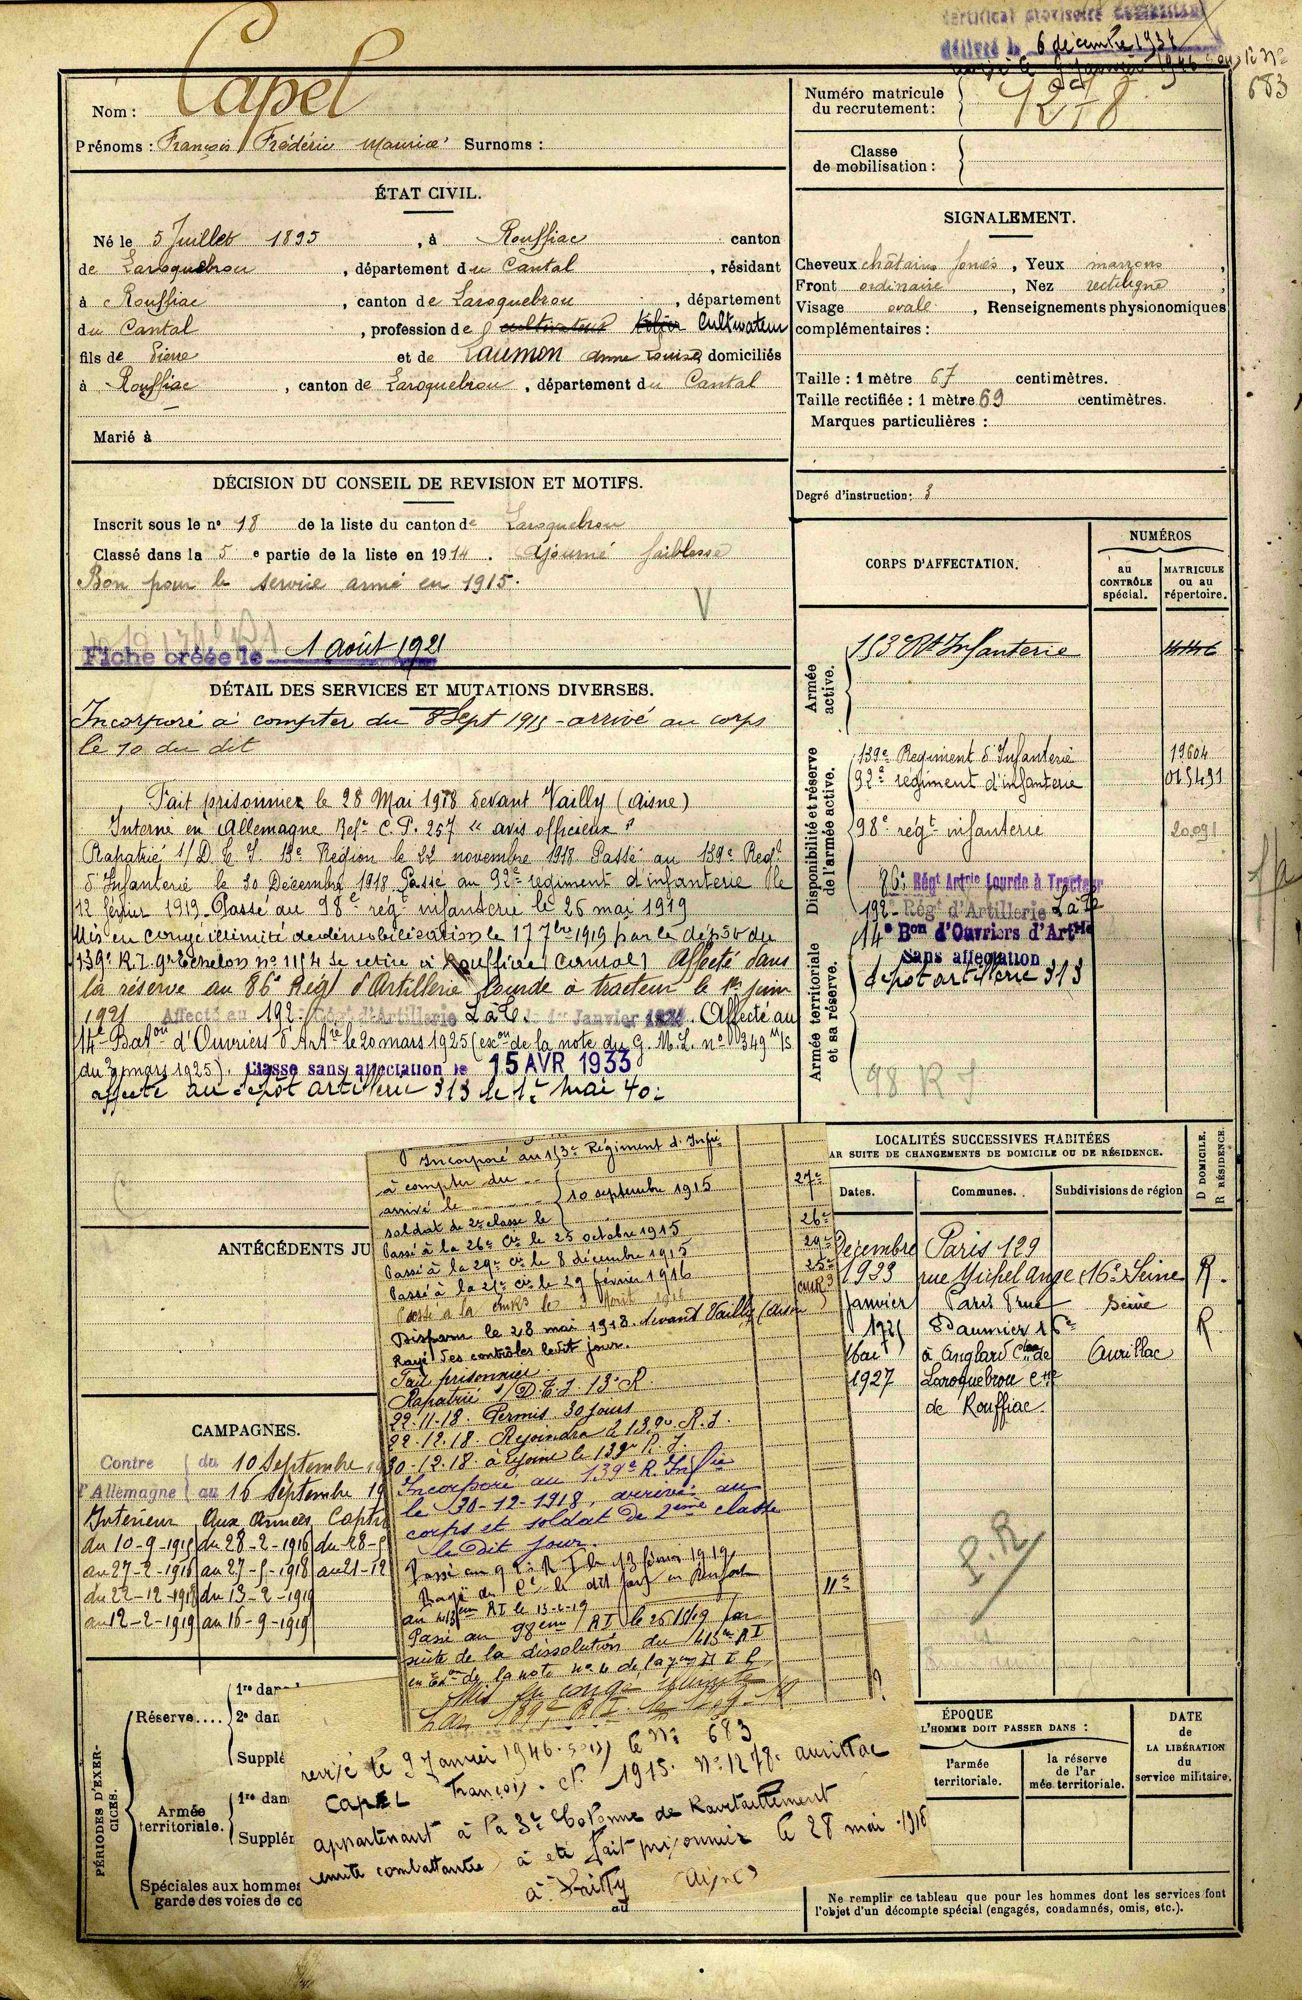 Certificat provisoire combattant
délivré le 6 décembre 1934
révisé le 9 Janvier 1946 sous le N° 683
Nom : Capel
Prénoms : François Frédéric Maurice Surnoms :
Numéro matricule du recrutement : 1278
Classe de mobilisation :
ÉTAT CIVIL.
Né le 5 Juillet 1895, à Rouffiac canton
de Laroquebrou, département du Cantal, résidant
à Rouffiac, canton de Laroquebrou, département
du Cantal, profession de cultivateur Cultivateur
fils de Pierre et de Laumon Anne Louise domiciliés
à Rouffiac, canton de Laroquebrou, département du Cantal
Marié à
SIGNALEMENT.
Cheveux châtains foncés, Yeux marrons,
Front ordinaire, Nez rectiligne,
Visage ovale, Renseignements physionomiques
complémentaires :
Taille : 1 mètre 67 centimètres.
Taille rectifiée : 1 mètre 69 centimètres.
Marques particulières :
Degré d'instruction : 3
DÉCISION DU CONSEIL DE REVISION ET MOTIFS.
Inscrit sous le n° 18 de la liste du canton de Laroquebrou
Classé dans la 5e partie de la liste en 1914. Ajourné faiblesse
Bon pour le service armé en 1915.
V
Fiche créée le 1 Août 1921
DÉTAIL DES SERVICES ET MUTATIONS DIVERSES.
Incorporé à compter du 8 Sept 1915 - arrivé au corps
le 10 du dit
Fait prisonnier le 28 Mai 1918 devant Vailly (Aisne)
Interné en Allemagne Refce C.P. 257 "avis officieux"
Rapatrié s/D.E.I. 13e Région le 22 novembre 1918 Passé au 139e Regt
d'Infanterie le 30 Décembre 1918. Passé au 92e régiment d'infanterie le
12 février 1919. Passé au 98e régt infanterie le 26 mai 1919
Mis en congé illimité de démobilisation le 17 7bre 1919 par le dépôt du
139e R.I. 9e Echelon n° 1154 se retire à Rouffiac (Cantal) Affecté dans
la réserve au 86e Régt d'Artillerie Lourde à tracteur le 1er juin
1921 Affecté au 192e Régt d'Artillerie L à T. le 1er Janvier 1924. Affecté au
14e Baton d'Ouvriers d'Artie le 20 mars 1925 (exon de la note du G.M.L. n° 00349 M/S
du 3 mars 1925). Classe sans affectation le 15 AVR 1933
affecté au dépôt artillerie 313 le 1er mai 40.
CORPS D'AFFECTATION.
NUMÉROS
au CONTRÔLE spécial.
MATRICULE ou au répertoire.
Armée active.
153e Rt Infanterie
Disponibilité et réserve de l'armée active.
139e Régiment d'Infanterie 19604
92e régiment d'infanterie 015491
98e régt infanterie 20.091
86e Régt Artie Lourde à Tracteur
192e Régt d'Artillerie L à T
Armée territoriale et sa réserve.
14e Bon d'Ouvriers d'Artie
Sans affectation
dépôt artillerie 313
98 R I
LOCALITÉS SUCCESSIVES HABITÉES
PAR SUITE DE CHANGEMENTS DE DOMICILE OU DE RÉSIDENCE.
Dates. Communes. Subdivisions de région D DOMICILE. R RÉSIDENCE.
Décembre 1923 Paris 129 rue Michel Ange (16e) Seine R.
Janvier 1925 Paris 7 rue Daumier 16e Seine R
Mai 1927 à Anglard Cton de Laroquebrou Cne de Rouffiac. Aurillac
P.R.
ANTÉCÉDENTS JU
CAMPAGNES.
Contre l'Allemagne du 10 Septembre 19
au 16 Septembre 19
Intérieur Aux Armées Capti
du 10-9-1915 du 28-2-1916 du 28-5
au 27-2-1916 au 27-5-1918 au 21-12
du 22-12-1918 du 13-2-1919
au 12-2-1919 au 16-9-1919
Incorporé au 153e Régiment d'Infie
à compter du
arrivé le 10 septembre 1915 27e
soldat de 2e classe le
Passé à la 26e Cie le 25 octobre 1915 26e
Passé à la 29e Cie le 8 décembre 1915 29e
Passé à la 25e Cie le 29 février 1916 25e
Passé à la CMR3 le 3 Août 1916 CMR3
Disparu le 28 mai 1918. devant Vailly (Aisne)
Rayé des contrôles ledit jour.
Fait prisonnier
Rapatrié s/D.E.I 13e R
22.11.18. Permis. 30 jours
22.12.18. Rejoindra le 139e R.I.
30-12-18 a rejoint le 139e R.I.
Incorporé au 139e R. Infie
le 30-12-1918, arrivé au
corps et soldat de 2ème classe
le dit jour.
Passé au 92e R I le 13 février 1919
au 413em RI le 13-2-19 11e
Passé au 98em RI le 26/5/19 par
suite de la dissolution du 413em RI
Mis en congé illimité
par 139e RI le 17-9-19
?
révisé le 9 Janvier 1946 sous le N° 683
CAPEL François. Cl. 1915. N° 1278 Aurillac
appartenant à la 3e Colonne de Ravitaillement
(unité combattante) a été fait prisonnier le 28 mai 1918
à Vailly (Aisne)
PÉRIODES D'EXERCICES.
Réserve....
1re dans
2e dan
Supplé
Armée territoriale.
1re dans
Supplém
Spéciales aux hommes
garde des voies de co
au
ÉPOQUE
L'HOMME DOIT PASSER DANS :
l'armée territoriale.
la réserve de l'armée territoriale.
DATE de LA LIBÉRATION du service militaire.
Ne remplir ce tableau que pour les hommes dont les services font
l'objet d'un décompte spécial (engagés, condamnés, omis, etc.).